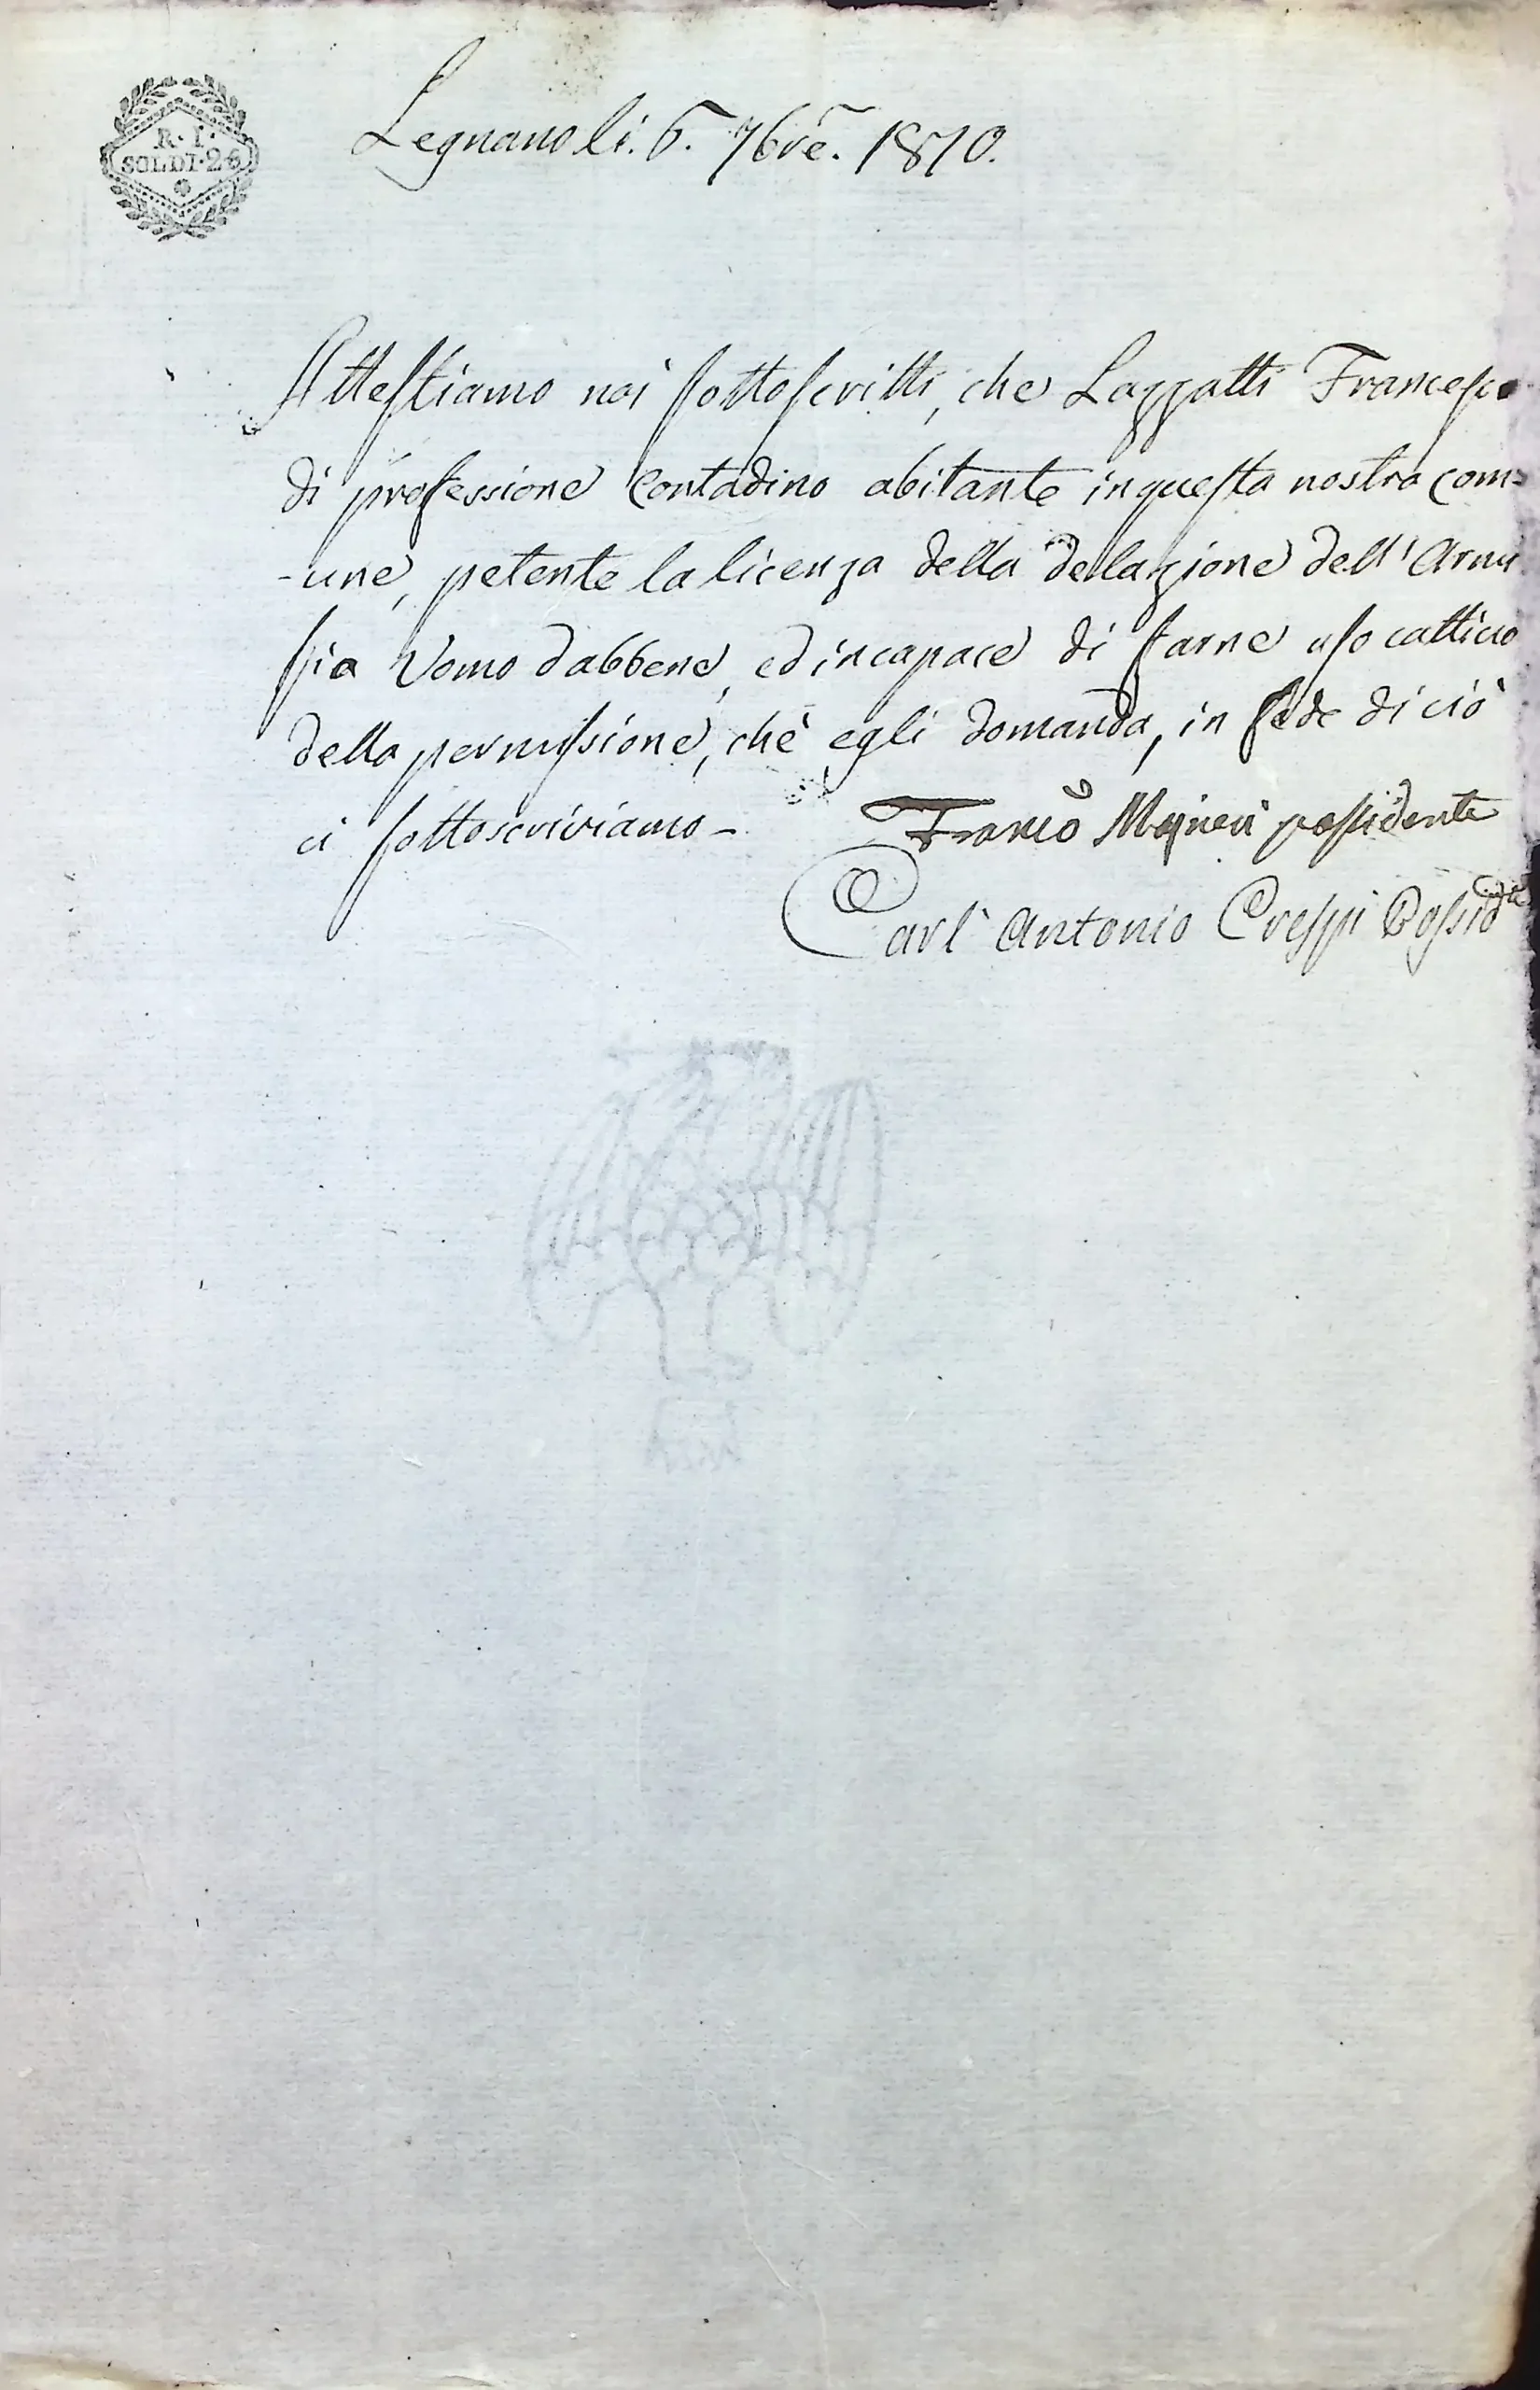 R. I.
SOLDI. 26
Legnano li. 6. 7bre. 1810.
Attestiamo noi sottoscritti, che Lazzatti Francesco
di professione Contadino abitante in questa nostra com=
-une, petente la licenza della dellazione dell' Armi
sia Uomo dabbene, ed incapace di farne uso cattivo
della permissione, che egli domanda, in fede di ciò
ci sottoscriviamo-
Franco possidente
Carl' Antonio Crespi Possidte